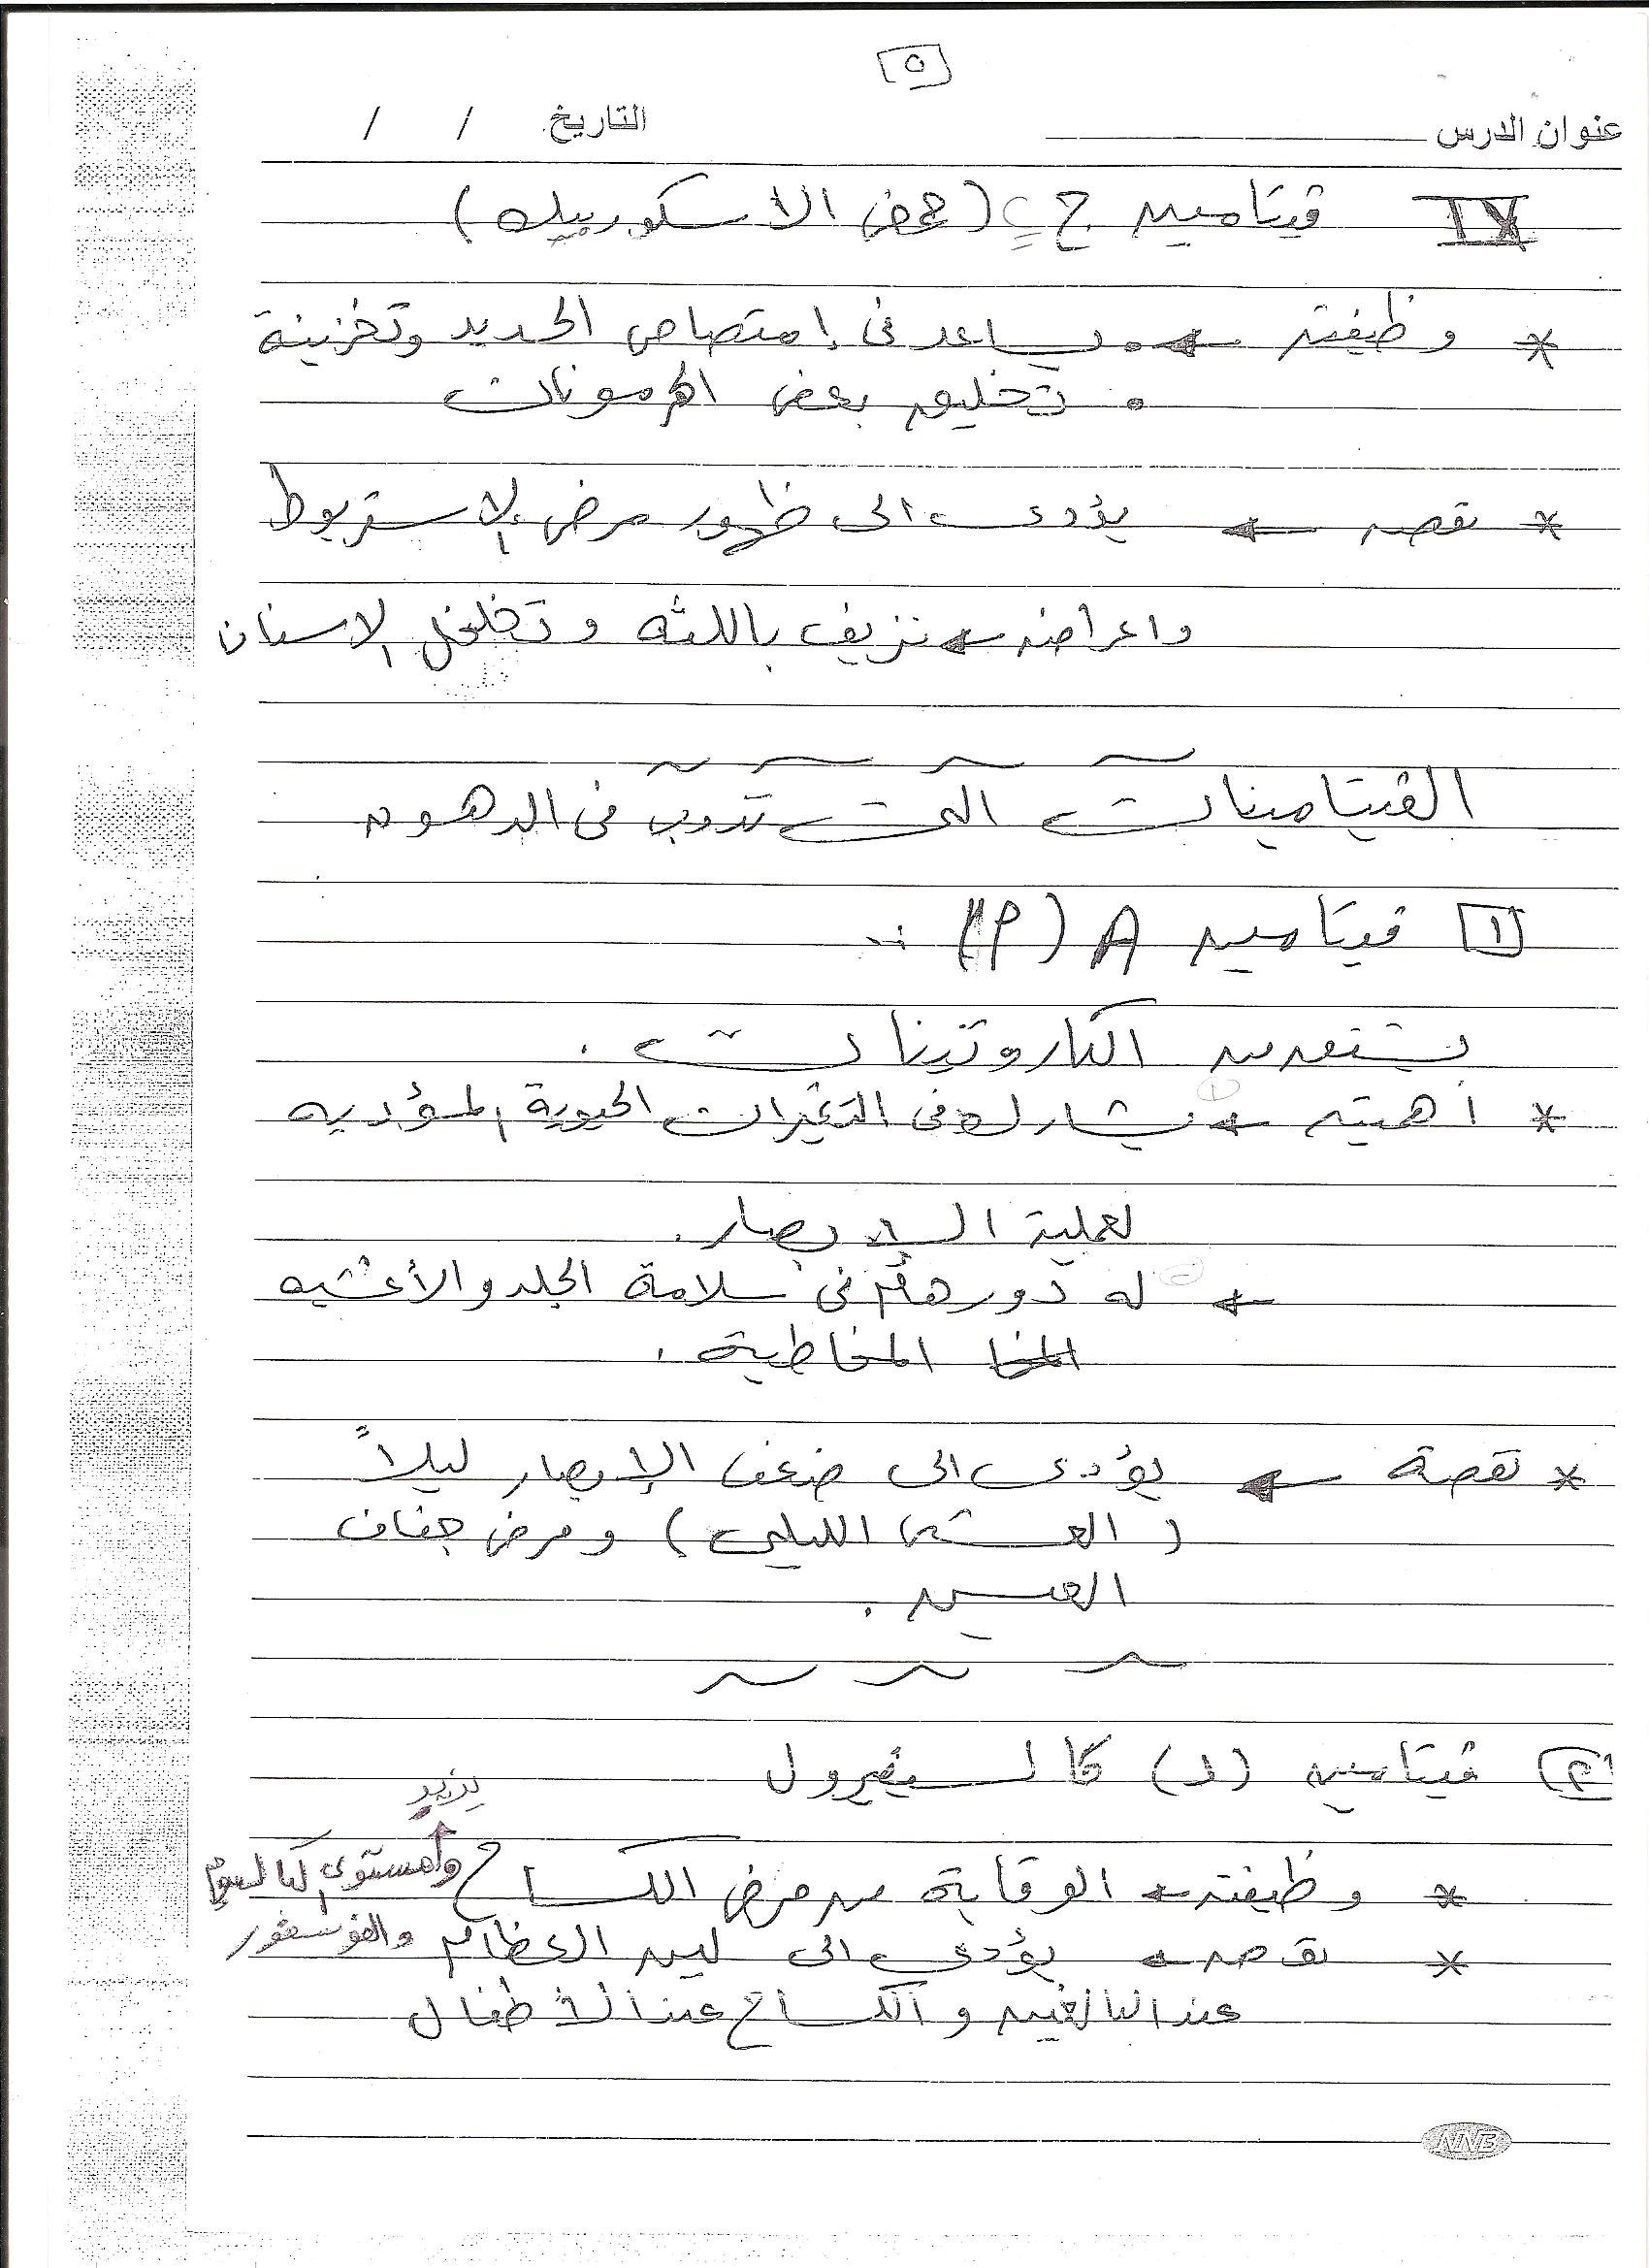 [٥]
عنوان الدرس التاريخ / /
IX ڤيتامين ج C (حمض الاسكوربيك)
* وظيفته ← • يساعد فى إمتصاص الحديد وتخزينة
• تخليق بعض الهرمونات
* نقصه ← يؤدى الى ظهور مرض الاستربوط
واعراضه ← نزيف باللثه وتخلخل الاسنان
الڤيتامينات التى تذوب فى الدهون
[١] ڤيتامين A (أ) :-
يشتق من الكاروتينات .
* أهميته ← ① يشارك فى التغيرات الحيوية المؤديه
لعملية الإبصار .
← ② له دور هام فى سلامة الجلد والأغشيه
المخا المخاطية .
* نقصة ← يؤدى الى ضعف الإبصار ليلاً
(العشى الليلى) ومرض جفاف
العين .
[٢] ڤيتامين (د) كالسيفيرول
يزيد
* وظيفته ← الوقاية من مرض الكساح و مستوى الكالسيوم
والفوسفور
* نقصه ← يؤدى الى لين العظام
عند البالغين والكساح عند الأطفال
NNB